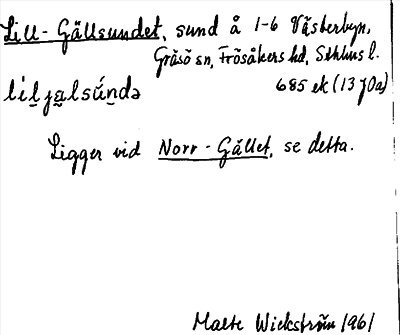 Lill-Gällsundet, sund å 1-6 Västerbyn,
Gräsö sn, Frösåkers hd, Sthlms l.
685 ek (13 J0a)
Ligger vid Norr-Gället, se detta.
Malte Wickström 1961